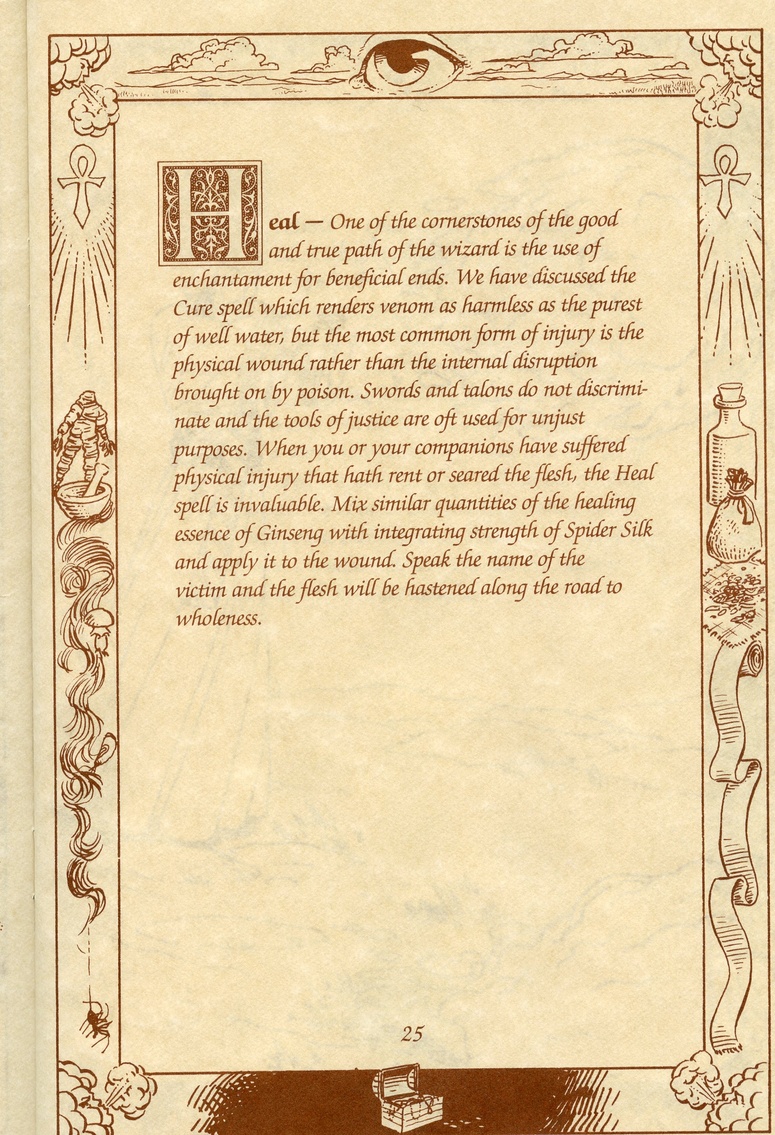 Heal — One of the cornerstones of the good
and true path of the wizard is the use of
enchantament for beneficial ends. We have discussed the
Cure spell which renders venom as harmless as the purest
of well water, but the most common form of injury is the
physical wound rather than the internal disruption
brought on by poison. Swords and talons do not discrimi-
nate and the tools of justice are oft used for unjust
purposes. When you or your companions have suffered
physical injury that hath rent or seared the flesh, the Heal
spell is invaluable. Mix similar quantities of the healing
essence of Ginseng with integrating strength of Spider Silk
and apply it to the wound. Speak the name of the
victim and the flesh will be hastened along the road to
wholeness.
25